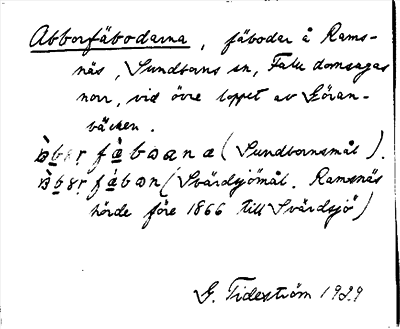 Abborfäbodarna, fäbodar å Rams-
näs, Sundborns sn, Falu domsagas
norr, vid övre loppet av Göran-
bäcken.
(Sundbornsmål).
(Svärdsjömål. Ramsnäs
hörde före 1866 till Svärdsjö)
G. Tideström 1929